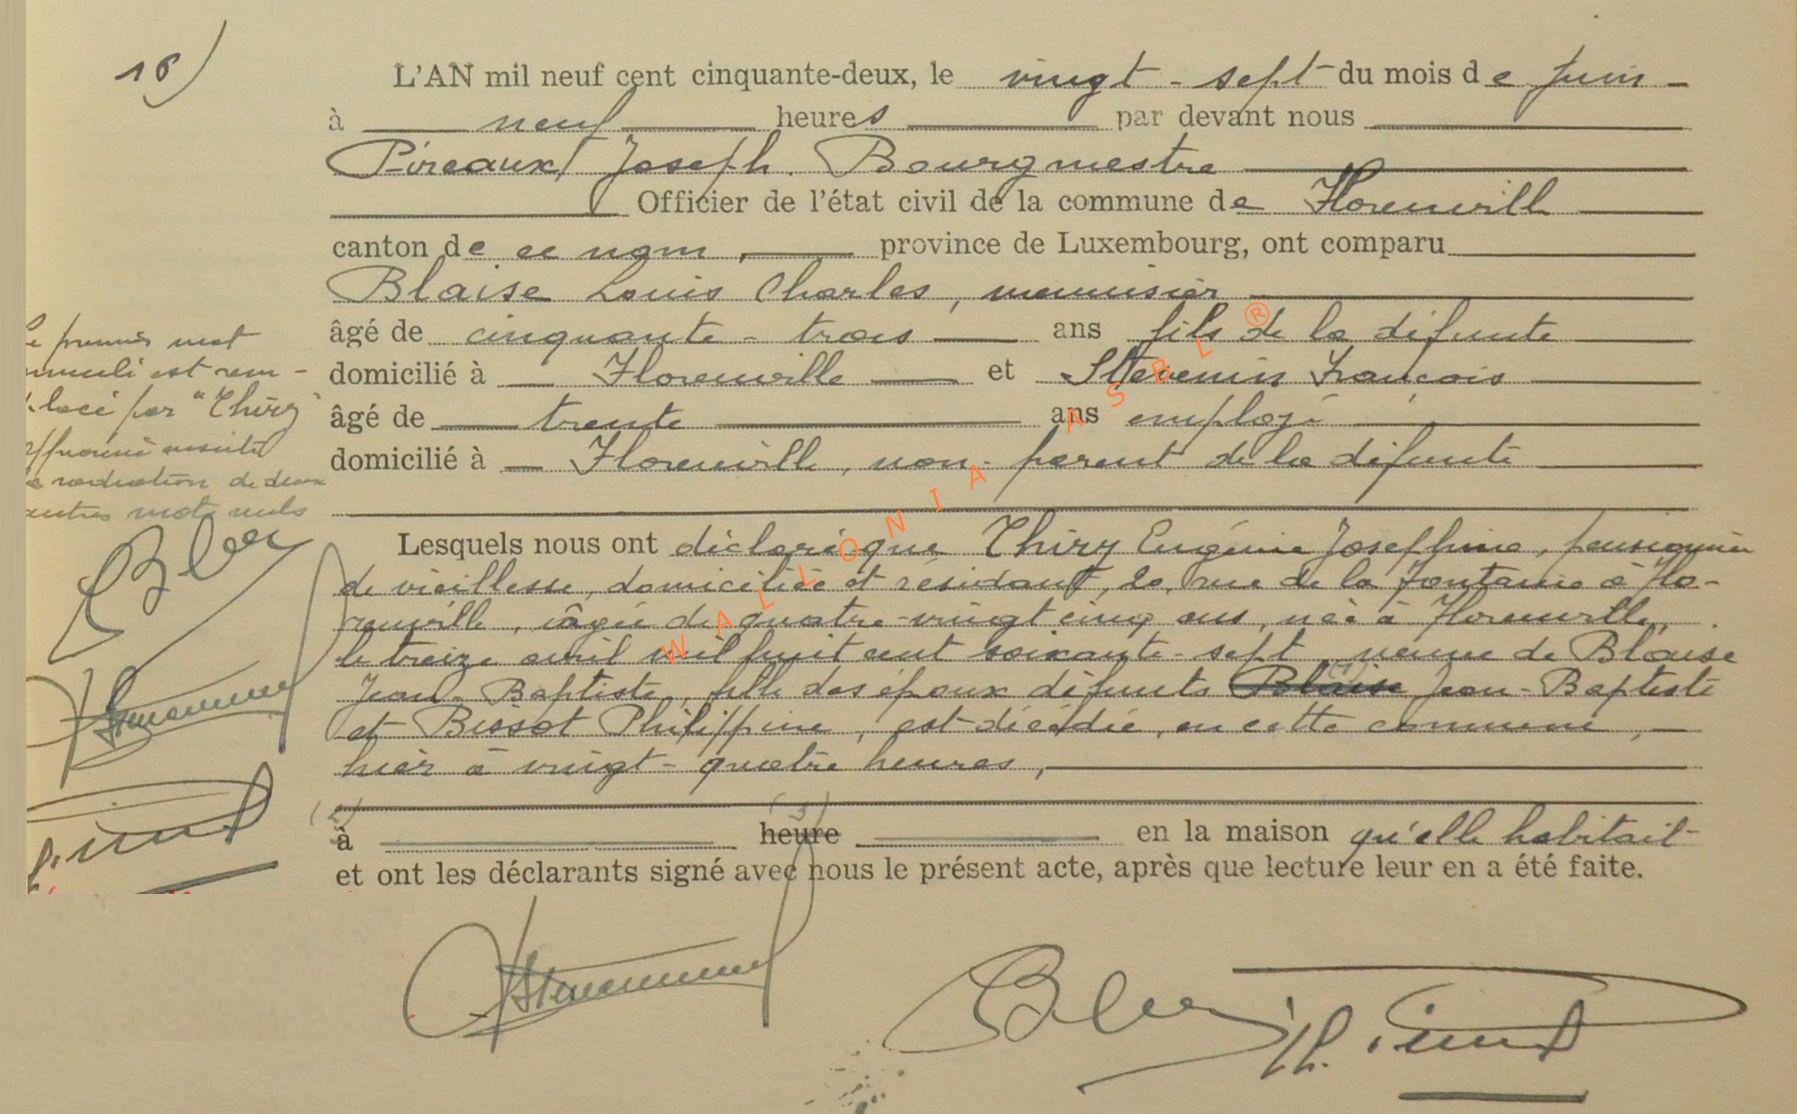 16)
L'AN mil neuf cent cinquante-deux, le vingt-sept du mois de juin
à neuf heures par devant nous
Pireaux Joseph. Bourgmestre
Officier de l'état civil de la commune de Florenville
canton de ce nom, province de Luxembourg, ont comparu
Blaise Louis Charles, menuisier
âgé de cinquante-trois ans fils de la défunte
domicilié à Florenville et Stevenin François
âgé de trente ans employé
domicilié à Florenville, non-parent de la défunte
Le premier mot
annulé est rem-
placé par "Thiry"
approuvé ensuite
la radiation de deux
autres mots nuls
Lesquels nous ont déclaré que Thiry Eugénie Joséphine, pensionnée
de vieillesse, domiciliée et résidant, 20, rue de la Fontaine à Flo-
renville, âgée de quatre-vingt cinq ans, née à Florenville,
le treize avril mil huit cent soixante-sept, veuve de Blaise
Jean-Baptiste, fille des époux défunts Blaise Jean-Baptiste
et Bissot Philippine, est décédée, en cette commune,
hier à vingt-quatre heures,
(2) (3)
à heure en la maison qu'elle habitait
et ont les déclarants signé avec nous le présent acte, après que lecture leur en a été faite.
WALLONIA ASBL ®